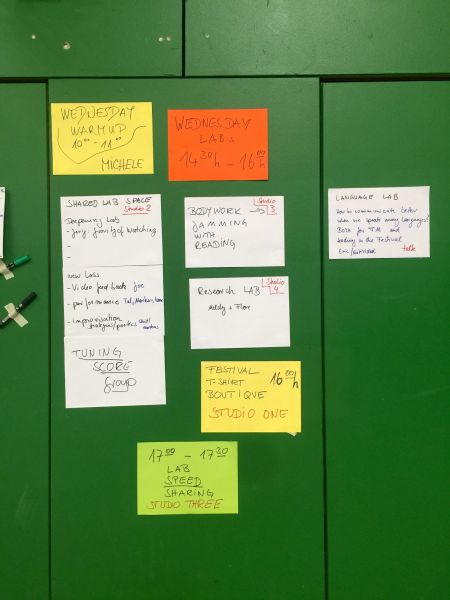 WEDNESDAY
WARMUP
10⁰⁰ - 11⁰⁰
MICHELE
WEDNESDAY
LABs
14³⁰h - 16⁰⁰h
SHARED LAB SPACE
Studio 2
Deepening Lab
- Joerg: Joerg of Watching
-
-
NEW LABS
- Video feed back Joe
- performance
- Improvisation
TUNING
SCORE
Group
BODYWORK → Studio 3
JAMMING
WITH
READING
Research LAB Studio 4
+ Flor
LANGUAGE LAB
How to communicate better
when we speak many languages?
Both for T.M. and
leading in the Festival
talk
FESTIVAL
T-SHIRT 16⁰⁰h
BOUTIQUE
STUDIO ONE
17⁰⁰ - 17³⁰
LAB
SPEED
SHARING
STUDIO THREE